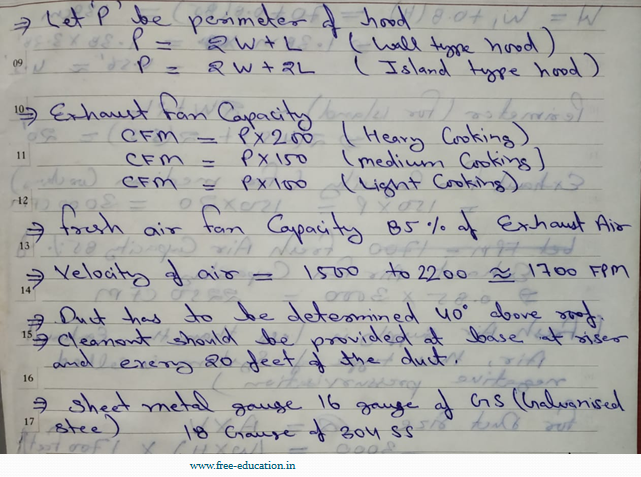 ⇒ Let 'P' be perimeter of hood
P = 2W+L (Wall type hood)
09 P = 2W+2L (Island type hood)
10 ⇒ Exhaust fan Capacity
CFM = P×200 (Heavy Cooking)
11 CFM = P×150 (medium Cooking]
CFM = P×100 (Light Cooking)
12
⇒ fresh air fan Capacity 85% of Exhaust Air
13
⇒ Velocity of air = 1500 to 2200 ≅ 1700 FPM
14
⇒ Duct has to be determined 40° above roof.
15 ⇒ Cleanout should be provided at base at riser
and every 20 feet of the duct.
16
⇒ Sheet metal gauge 16 gauge of GS (Galvanised
17 Stee) 18 Gauge of 304 SS
www.free-education.in